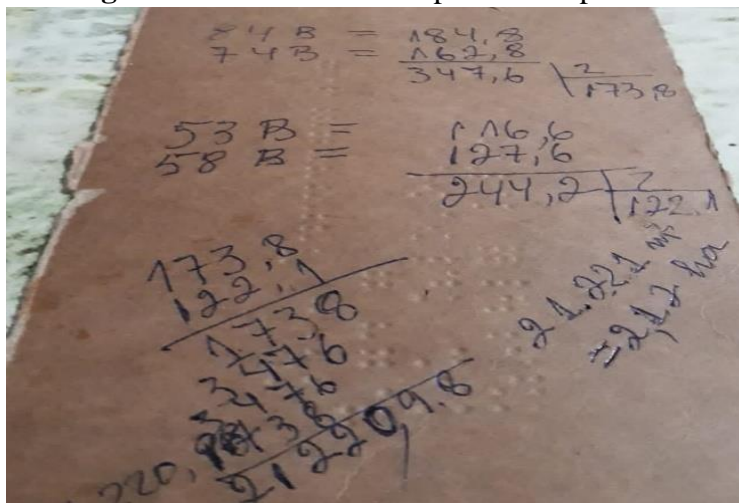 84 B = 184,8
74 B = 162,8
347,6 | 2
173,8
53 B = 116,6
58 B = 127,6
244,2 | 2
122,1
173,8
122,1
173,8
3476
3476
1738
21220,9.8
21.221 m²
= 2,12 ha